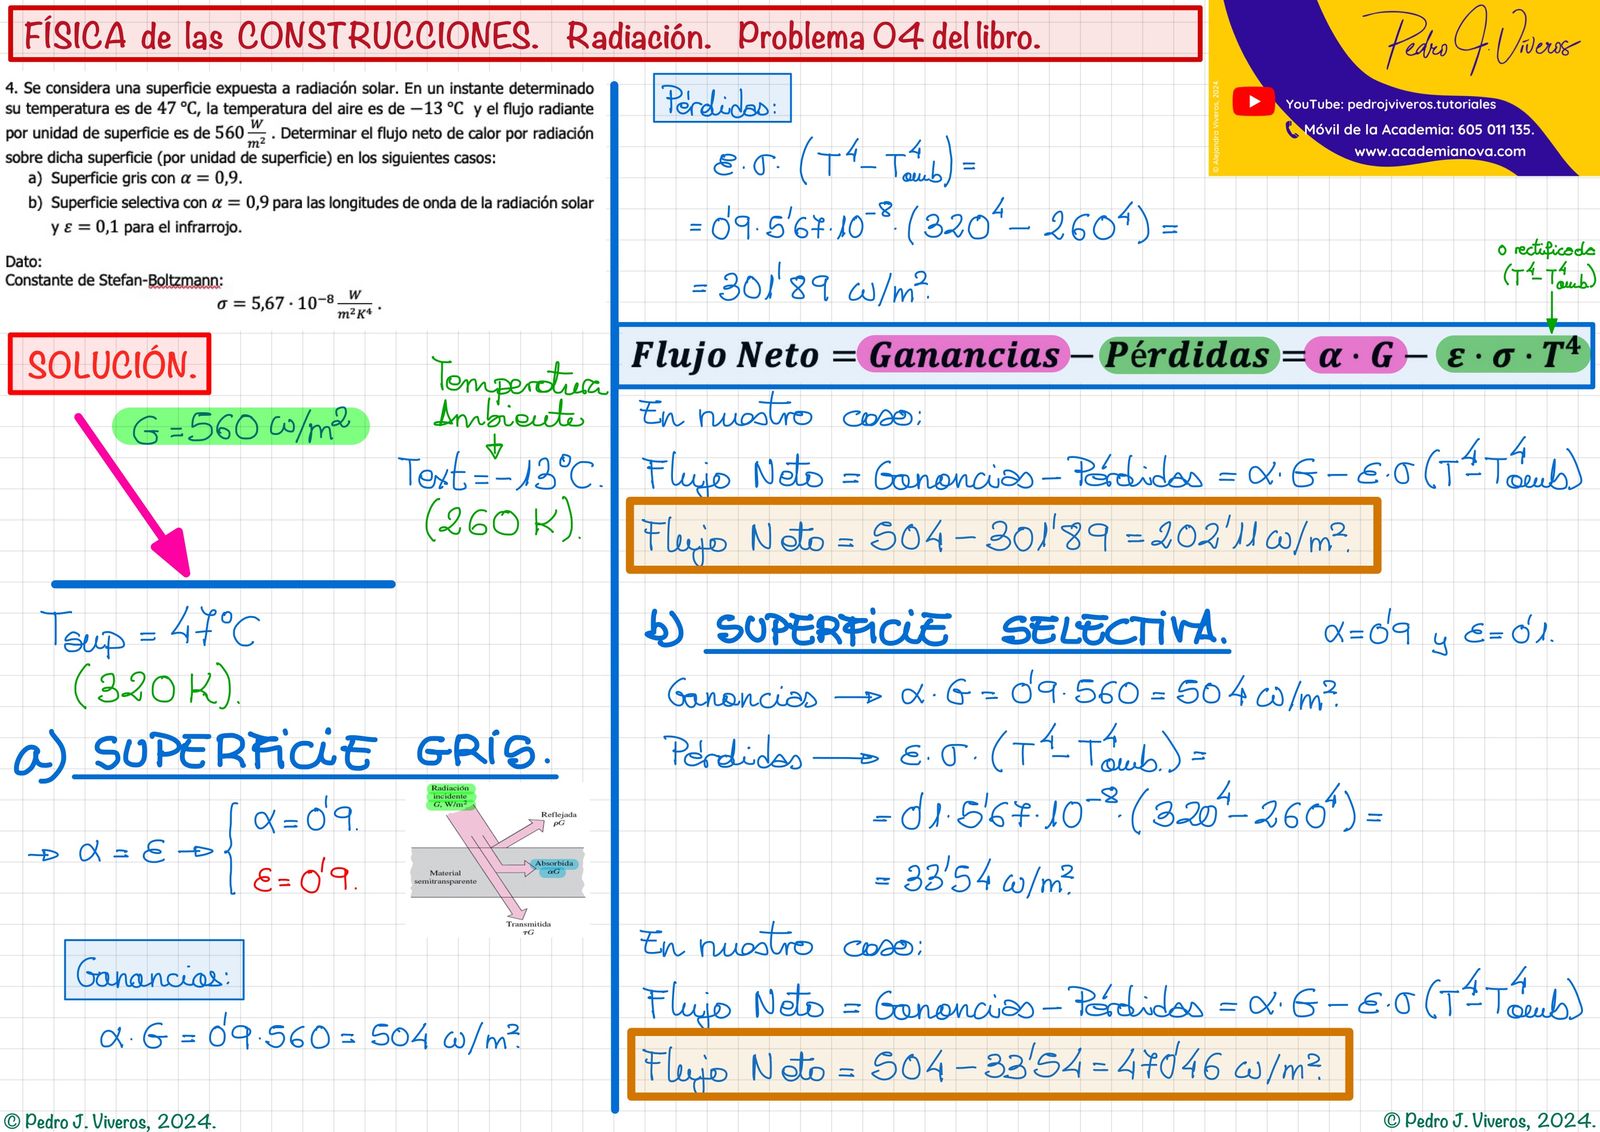 FÍSICA de las CONSTRUCCIONES. Radiación. Problema 04 del libro.
Pedro J. Viveros
YouTube: pedrojviveros.tutoriales
Móvil de la Academia: 605 011 135.
www.academianova.com
© Alejandro Viveros, 2024.
4. Se considera una superficie expuesta a radiación solar. En un instante determinado
su temperatura es de 47 °C, la temperatura del aire es de −13 °C y el flujo radiante
por unidad de superficie es de 560 W/m². Determinar el flujo neto de calor por radiación
sobre dicha superficie (por unidad de superficie) en los siguientes casos:
a) Superficie gris con α = 0,9.
b) Superficie selectiva con α = 0,9 para las longitudes de onda de la radiación solar
y ε = 0,1 para el infrarrojo.
Dato:
Constante de Stefan-Boltzmann:
σ = 5,67 · 10⁻⁸ W/m²K⁴ .
SOLUCIÓN.
G = 560 W/m²
Temperatura
Ambiente
↓
Text = -13°C.
(260 K).
Tsup = 47°C
(320 K).
a) SUPERFICIE GRIS.
→ α = ε → { α = 0'9.
ε = 0'9.
Radiación
incidente
G, W/m²
Reflejada
ρG
Material
semitransparente
Absorbida
αG
Transmitida
τG
Ganancias:
α · G = 0'9 · 560 = 504 W/m².
Pérdidas:
ε · σ · (T⁴ − T⁴amb) =
= 0'9 · 5'67 · 10⁻⁸ · (320⁴ − 260⁴) =
= 301'89 W/m².
o rectificado
(T⁴ − T⁴amb)
Flujo Neto = Ganancias − Pérdidas = α · G − ε · σ · T⁴
En nuestro caso:
Flujo Neto = Ganancias − Pérdidas = α · G − ε · σ (T⁴ − T⁴amb)
Flujo Neto = 504 − 301'89 = 202'11 W/m².
b) SUPERFICIE SELECTIVA. α = 0'9 y ε = 0'1.
Ganancias → α · G = 0'9 · 560 = 504 W/m².
Pérdidas → ε · σ · (T⁴ − T⁴amb.) =
= 0'1 · 5'67 · 10⁻⁸ · (320⁴ − 260⁴) =
= 33'54 W/m².
En nuestro caso:
Flujo Neto = Ganancias − Pérdidas = α · G − ε · σ (T⁴ − T⁴amb)
Flujo Neto = 504 − 33'54 = 470'46 W/m².
© Pedro J. Viveros, 2024.
© Pedro J. Viveros, 2024.